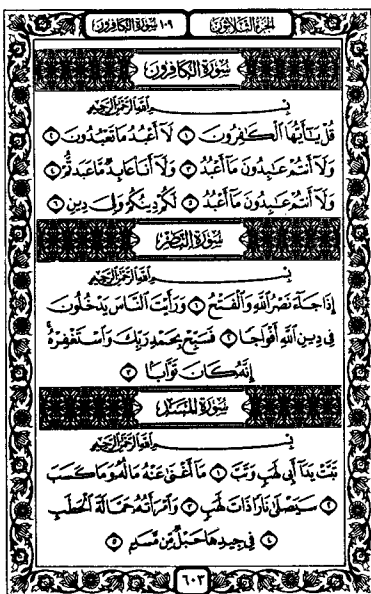 الجزء الثلاثون ١٠٩ سورة الكافرون
سورة الكافرون
بسم الله الرحمن الرحيم
قُلْ يَـٰٓأَيُّهَا ٱلْكَـٰفِرُونَ ١ لَآ أَعْبُدُ مَا تَعْبُدُونَ ٢
وَلَآ أَنتُمْ عَـٰبِدُونَ مَآ أَعْبُدُ ٣ وَلَآ أَنَا۠ عَابِدٌ مَّا عَبَدتُّمْ ٤
وَلَآ أَنتُمْ عَـٰبِدُونَ مَآ أَعْبُدُ ٥ لَكُمْ دِينُكُمْ وَلِىَ دِينِ ٦
سورة النصر
بسم الله الرحمن الرحيم
إِذَا جَآءَ نَصْرُ ٱللَّهِ وَٱلْفَتْحُ ١ وَرَأَيْتَ ٱلنَّاسَ يَدْخُلُونَ
فِى دِينِ ٱللَّهِ أَفْوَاجًا ٢ فَسَبِّحْ بِحَمْدِ رَبِّكَ وَٱسْتَغْفِرْهُ
إِنَّهُۥ كَانَ تَوَّابًۢا ٣
سورة المسد
بسم الله الرحمن الرحيم
تَبَّتْ يَدَآ أَبِى لَهَبٍ وَتَبَّ ١ مَآ أَغْنَىٰ عَنْهُ مَالُهُۥ وَمَا كَسَبَ
٢ سَيَصْلَىٰ نَارًا ذَاتَ لَهَبٍ ٣ وَٱمْرَأَتُهُۥ حَمَّالَةَ ٱلْحَطَبِ
٤ فِى جِيدِهَا حَبْلٌ مِّن مَّسَدٍۭ ٥
٦٠٣